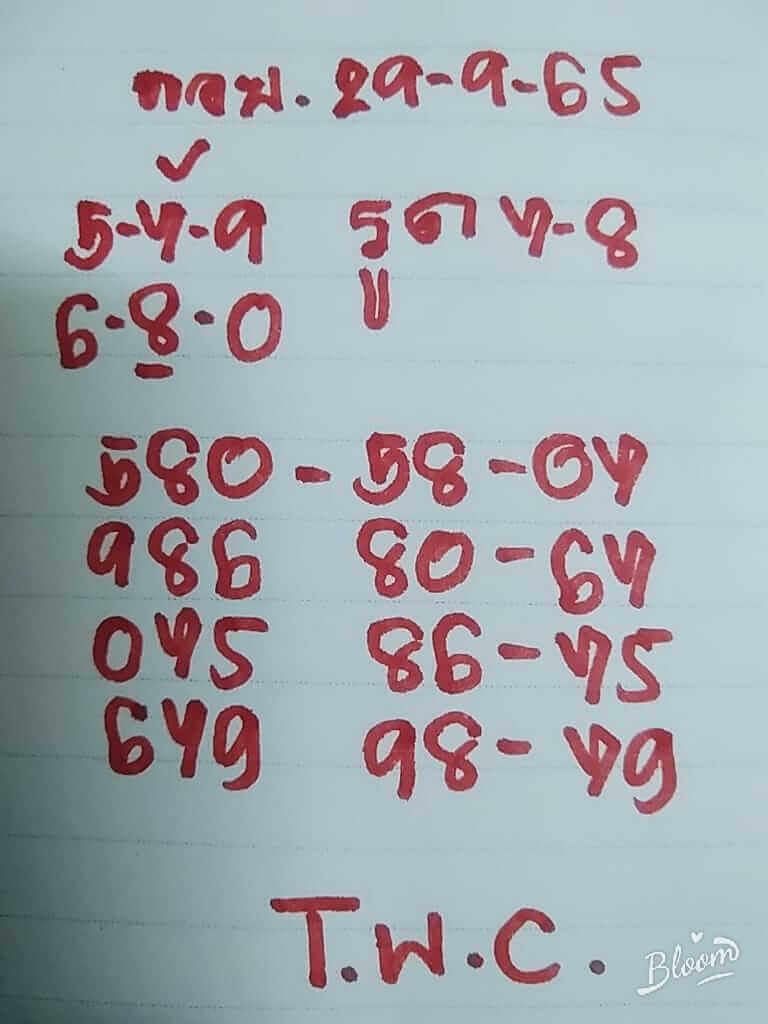 29-9-65
✓
5-4-9 รูด 4-8
6-8-0
580 - 58 - 04
986 80 - 64
045 86 - 45
649 98 - 49
T.W.C.
Bloom